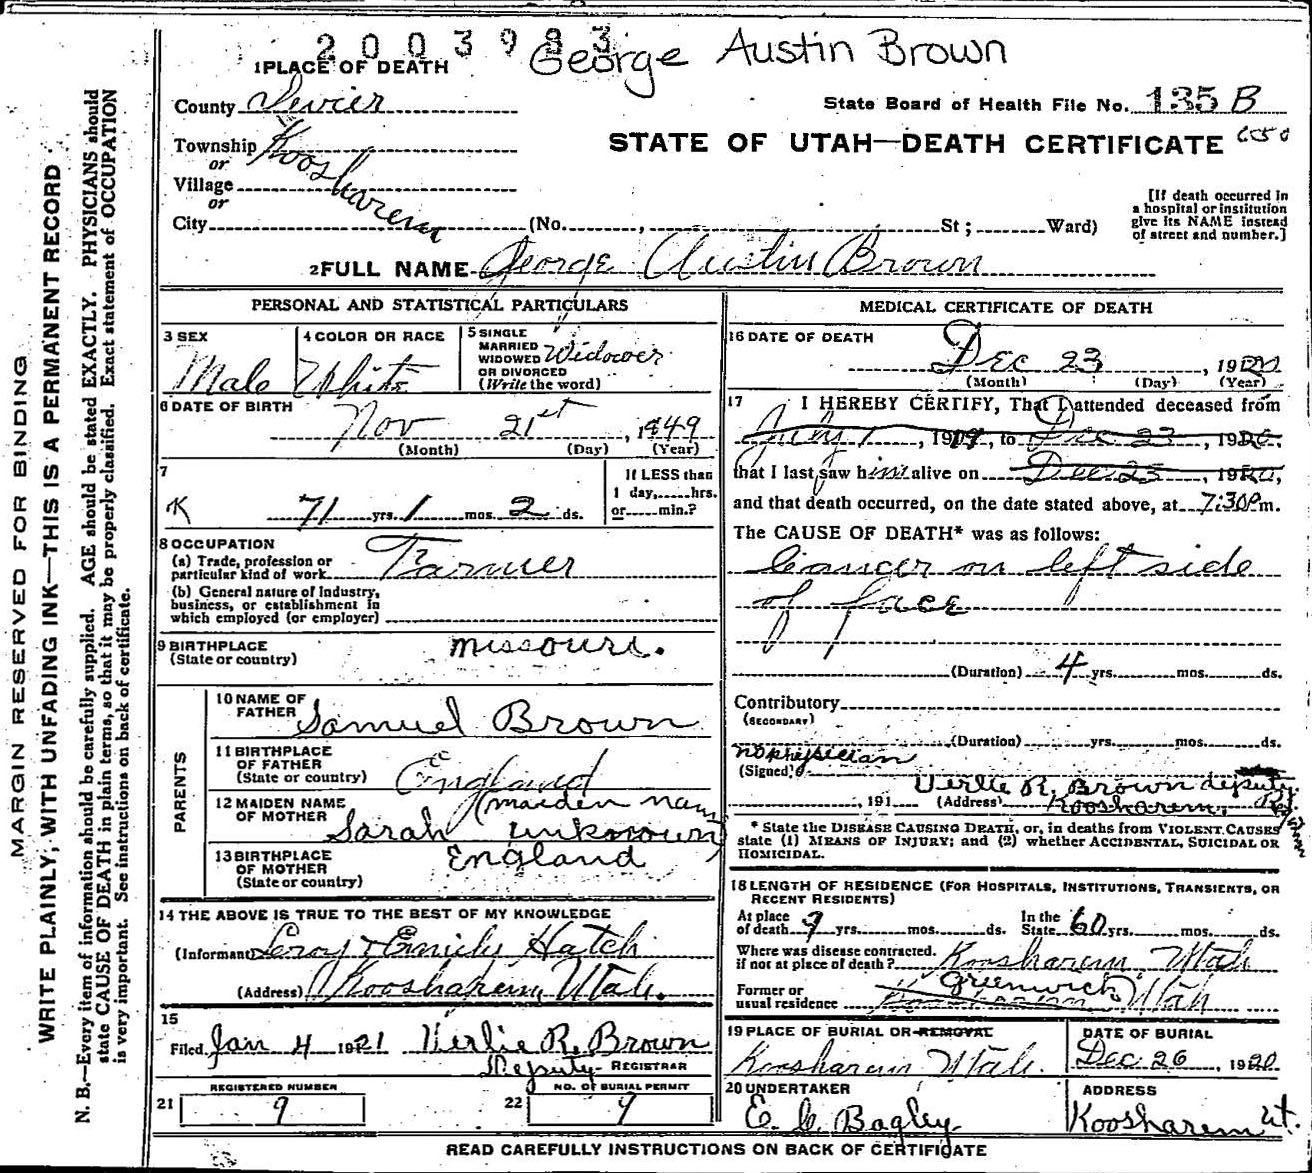 2003983 George Austin Brown
1 PLACE OF DEATH
County Sevier
State Board of Health File No. 135 B
Township Koosharem
or
STATE OF UTAH—DEATH CERTIFICATE 650
Village
or
City (No. , St; Ward)
[If death occurred in
a hospital or institution
give its NAME instead
of street and number.]
2 FULL NAME George Austin Brown
PERSONAL AND STATISTICAL PARTICULARS
3 SEX
Male
4 COLOR OR RACE
White
5 SINGLE
MARRIED
WIDOWED
OR DIVORCED
(Write the word)
Widower
6 DATE OF BIRTH
Nov 21st, 1849
(Month) (Day) (Year)
7
If LESS than
1 day, hrs.
or min.?
K 71 yrs. 1 mos. 2 ds.
8 OCCUPATION
(a) Trade, profession or
particular kind of work Farmer
(b) General nature of Industry,
business, or establishment in
which employed (or employer)
9 BIRTHPLACE
(State or country)
Missouri.
PARENTS
10 NAME OF
FATHER Samuel Brown
11 BIRTHPLACE
OF FATHER
(State or country)
England
12 MAIDEN NAME
OF MOTHER
(maiden name
Sarah unknown)
13 BIRTHPLACE
OF MOTHER
(State or country)
England
14 THE ABOVE IS TRUE TO THE BEST OF MY KNOWLEDGE
(Informant) Leroy & Emily Hatch
(Address) Koosharem, Utah.
15
Filed Jan 4 1921 Verlie R. Brown
Deputy REGISTRAR
REGISTERED NUMBER
21 9
NO. OF BURIAL PERMIT
22 9
MEDICAL CERTIFICATE OF DEATH
16 DATE OF DEATH
Dec 23, 1920
(Month) (Day) (Year)
17 I HEREBY CERTIFY, That I attended deceased from
July 1, 1919, to Dec 23, 1920.
that I last saw him alive on Dec 23, 1920,
and that death occurred, on the date stated above, at 7:30P m.
The CAUSE OF DEATH* was as follows:
Cancer on left side
of face
(Duration) 4 yrs. mos. ds.
Contributory
(SECONDARY)
(Duration) yrs. mos. ds.
no physician
(Signed)
Verlie R. Brown deputy
, 191 (Address) Koosharem,
* State the DISEASE CAUSING DEATH, or, in deaths from VIOLENT CAUSES
state (1) MEANS OF INJURY; and (2) whether ACCIDENTAL, SUICIDAL OR
HOMICIDAL.
18 LENGTH OF RESIDENCE (FOR HOSPITALS, INSTITUTIONS, TRANSIENTS, OR
RECENT RESIDENTS)
At place
of death 9 yrs. mos. ds.
In the
State 60 yrs. mos. ds.
Where was disease contracted,
if not at place of death? Koosharem, Utah
Former or
usual residence Koosharem Greenwich, Utah
19 PLACE OF BURIAL OR REMOVAL
Koosharem Utah.
DATE OF BURIAL
Dec 26, 1920
20 UNDERTAKER
E. C. Bagley
ADDRESS
Koosharem Ut.
READ CAREFULLY INSTRUCTIONS ON BACK OF CERTIFICATE
MARGIN RESERVED FOR BINDING
WRITE PLAINLY, WITH UNFADING INK—THIS IS A PERMANENT RECORD
N. B.—Every item of information should be carefully supplied. AGE should be stated EXACTLY. PHYSICIANS should
state CAUSE OF DEATH in plain terms, so that it may be properly classified. Exact statement of OCCUPATION
is very important. See instructions on back of certificate.